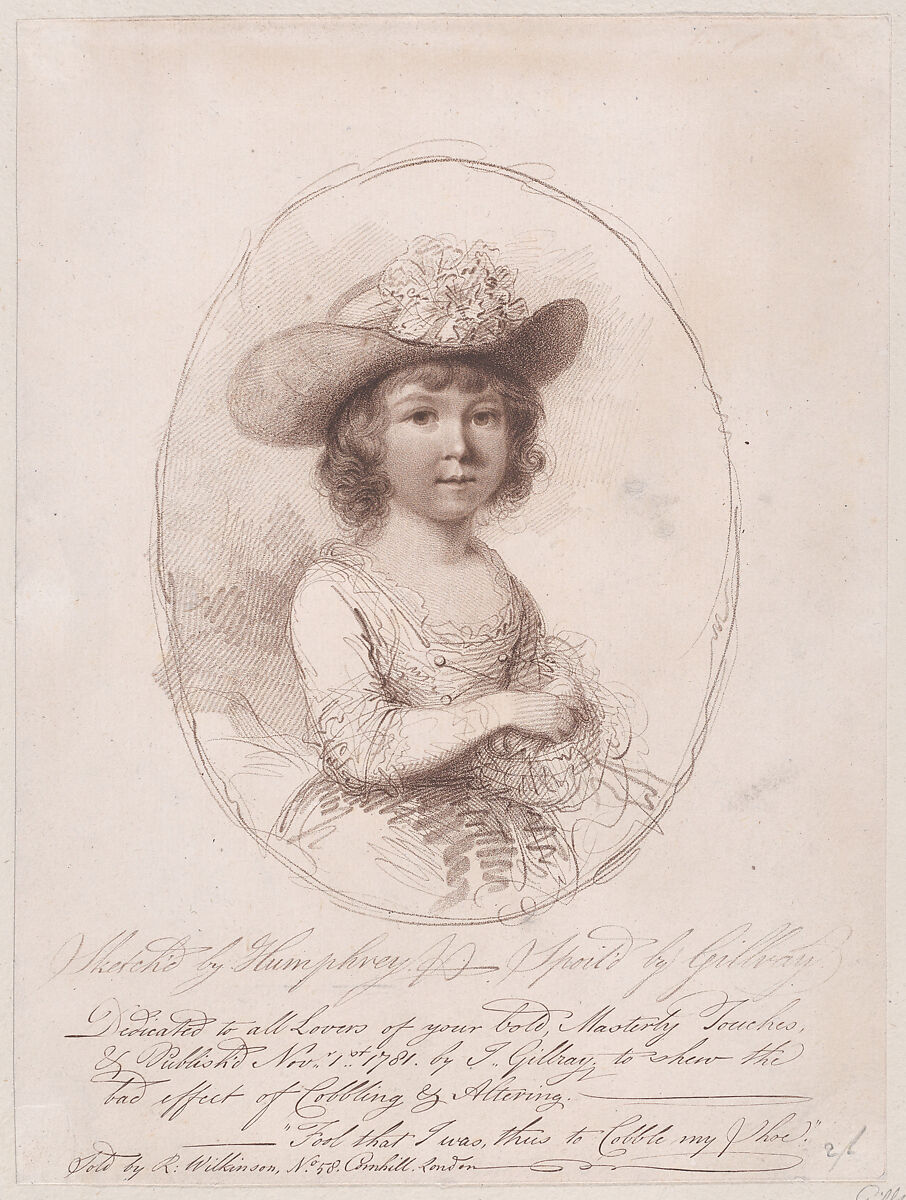 Sketch'd by Humphrey. Spoil'd by Gillray.
Dedicated to all Lovers of your bold, Masterly Touches,
& Publish'd Nov.r 1.st 1781. by J. Gillray, to shew the
bad effect of Cobbling & Altering.
"Fool that I was, thus to Cobble my Shoe".
Sold by R: Wilkinson, N.o 58. Cornhill. London